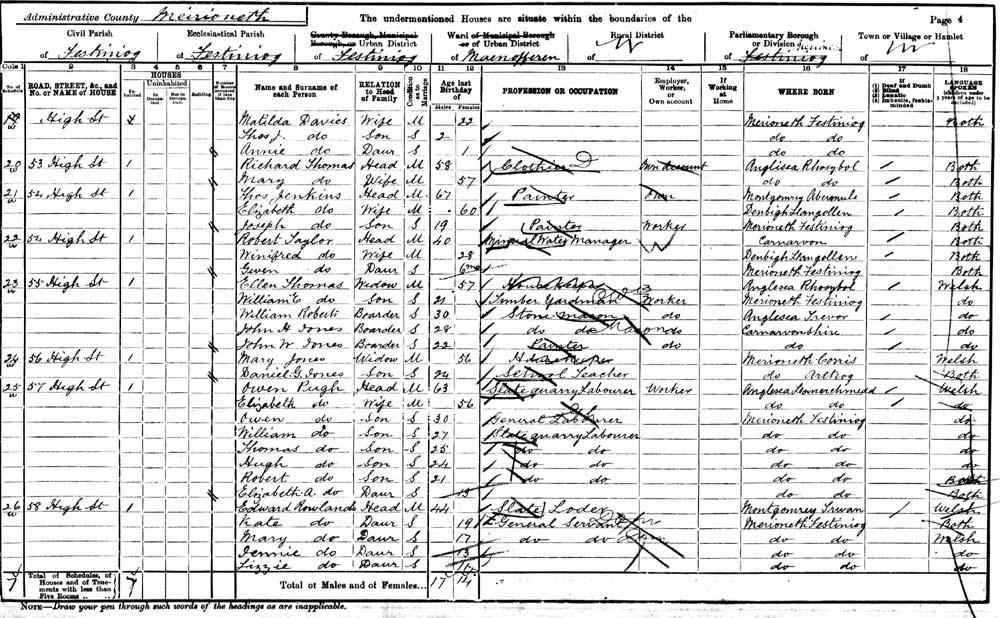 Administrative County Meirioneth The undermentioned Houses are situate within the boundaries of the Page 4
Civil Parish Ecclesiastical Parish County Borough, Municipal Borough, or Urban District Ward of Municipal Borough or of Urban District Rural District Parliamentary Borough or Division Town or Village or Hamlet
of Festiniog of Festiniog of Festiniog of Maenofferen of of Festiniog of
Cols 1 2 3 4 5 6 7 8 9 10 11 12 13 14 15 16 17 18
No. of Schedule ROAD, STREET, &c., and No. or NAME of HOUSE HOUSES Inhabited Uninhabited In Occupation Not in Occupation Building Number of Rooms occupied if less than five Name and Surname of each Person RELATION to Head of Family Condition as to Marriage Age last Birthday of Males Females PROFESSION OR OCCUPATION Employer, Worker, or Own account If Working at Home WHERE BORN If (1) Deaf and Dumb (2) Blind (3) Lunatic (4) Imbecile, feeble-minded LANGUAGE SPOKEN (children under 3 years of age to be excluded)
High St Matilda Davies Wife M 22 Merioneth Festiniog Both
Thos J. do Son S 2 do do
Annie do Daur S 1 do do
20 53 High St 1 Richard Thomas Head M 58 Clothier Own account Anglesea Rhosybol Both
Mary do Wife M 57 do do Both
21 54 High St 1 Thos Jenkins Head M 67 Painter Own Montgomry Abermule Both
Elizabeth do Wife M 60 Denbigh Llangollen Both
Joseph do Son S 19 Painter Worker Merioneth Festiniog Both
22 54 High St 1 Robert Taylor Head M 40 Mineral Water Manager W Carnarvon Both
Winifred do Wife M 28 Denbigh Llangollen Both
Gwen do Daur S 6mo Merioneth Festiniog Both
23 55 High St 1 Ellen Thomas Widow M 57 House Keeper Anglesea Rhosybol Welsh
William E do Son S 21 Timber Yardman Worker Merioneth Festiniog do
William Roberts Boarder S 30 Stone Mason do Anglesea Trevor do
John H Jones Boarder S 28 do do do Carnarvonshire do
John W Jones Boarder S 22 Painter do do do
24 56 High St 1 Mary Jones Widow M 56 Housekeeper Merioneth Corris Welsh
Daniel G. Jones Son S 24 School Teacher do Arthog Both
25 57 High St 1 Owen Pugh Head M 63 Slate quarry Labourer Worker Anglesea Llanerchmedd Welsh
Elizabeth do Wife M 56 do do do
Owen do Son S 30 General Labourer Merioneth Festiniog do
William do Son S 27 Slate quarry Labourer do do do
Thomas do Son S 25 do do do do do
Hugh do Son S 24 do do do do do
Robert do Son S 21 do do do do Both
Elizabeth A. do Daur S 13 do do Both
26 58 High St 1 Edward Rowlands Head M 44 Slate Loder Montgomrey Trwan Welsh
Kate do Daur S 19 General Servant Merioneth Festiniog Both
Mary do Daur S 17 do do do do Welsh
Jennie do Daur S 13 do do do
Lizzie do Daur S do do do
7 Total of Schedules, of Houses and of Tenements with less than Five Rooms 7 Total of Males and of Females... 17 14
NOTE—Draw your pen through such words of the headings as are inapplicable.